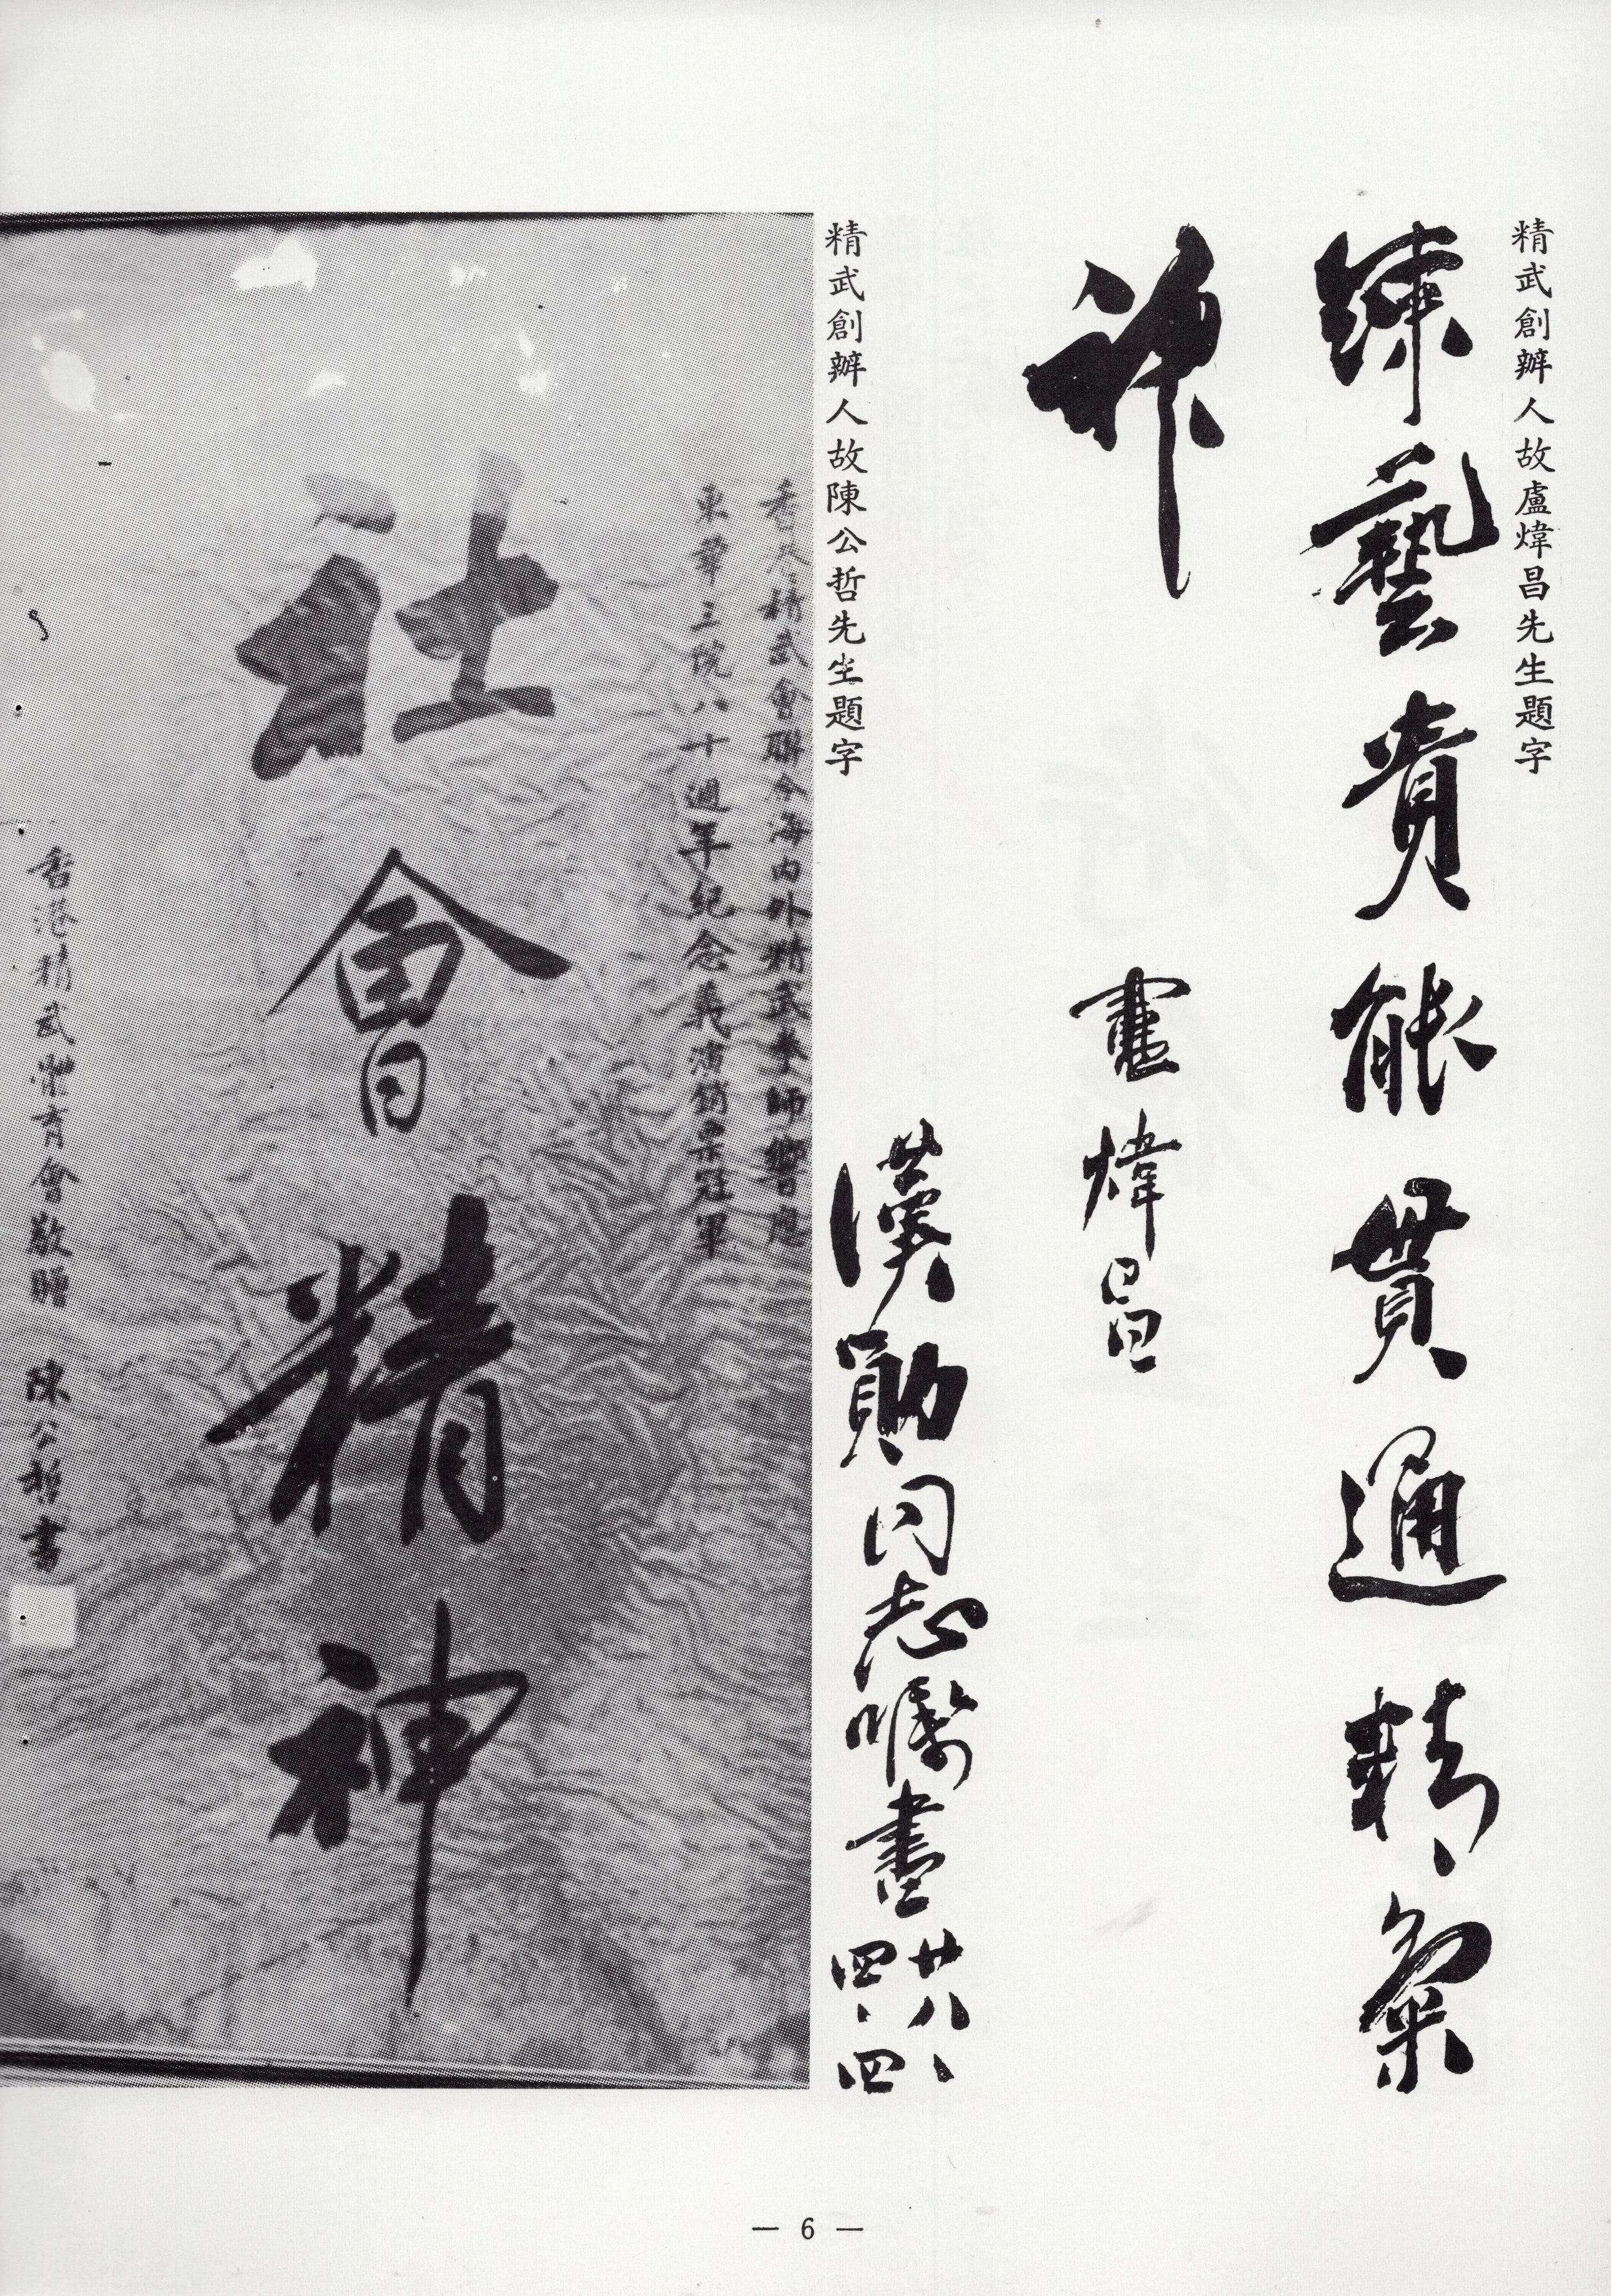 精武創辦人故盧煒昌先生題字
練藝貴能貫通精氣
神
盧煒昌
漢勛同志囑書
廿八、
四、四
精武創辦人故陳公哲先生題字
香港精武會聯合海內外精武拳師響應
東華三院八十週年紀念義演銷票冠軍
社會精神
香港精武體育會敬贈 陳公哲書
— 6 —